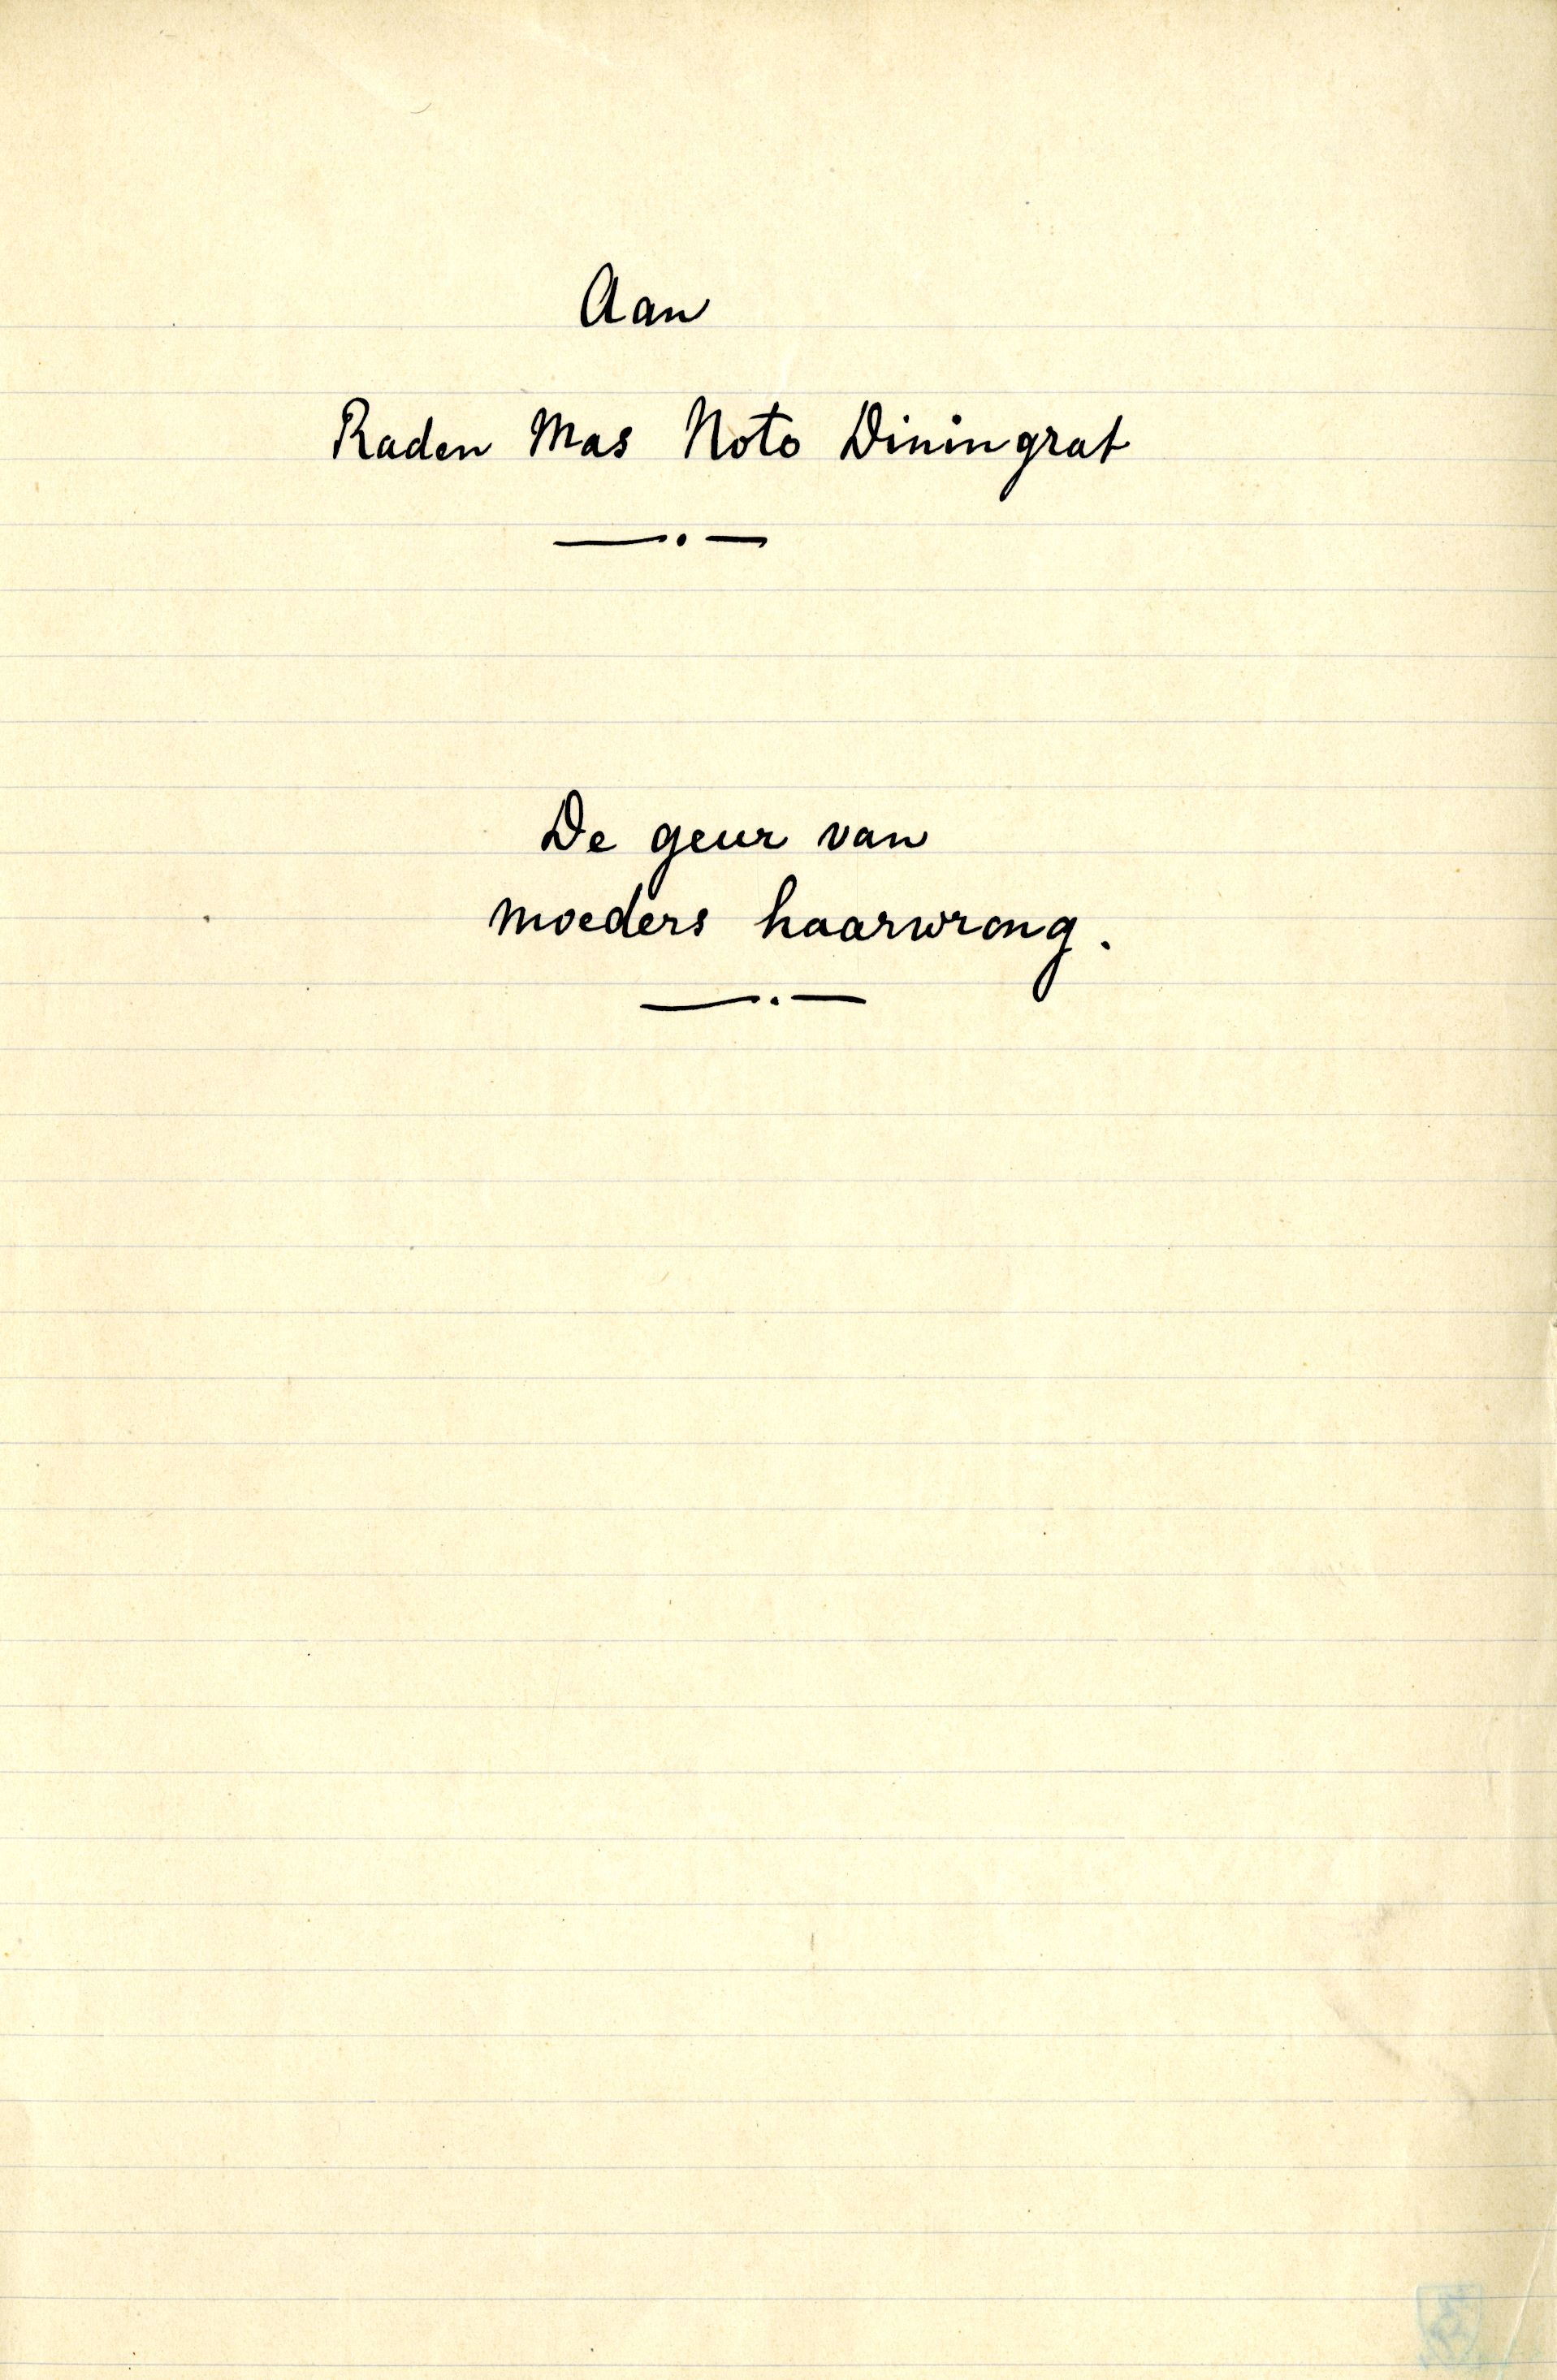 Aan
Raden Mas Noto Diningrat
De geur van
moeders haarwrong.